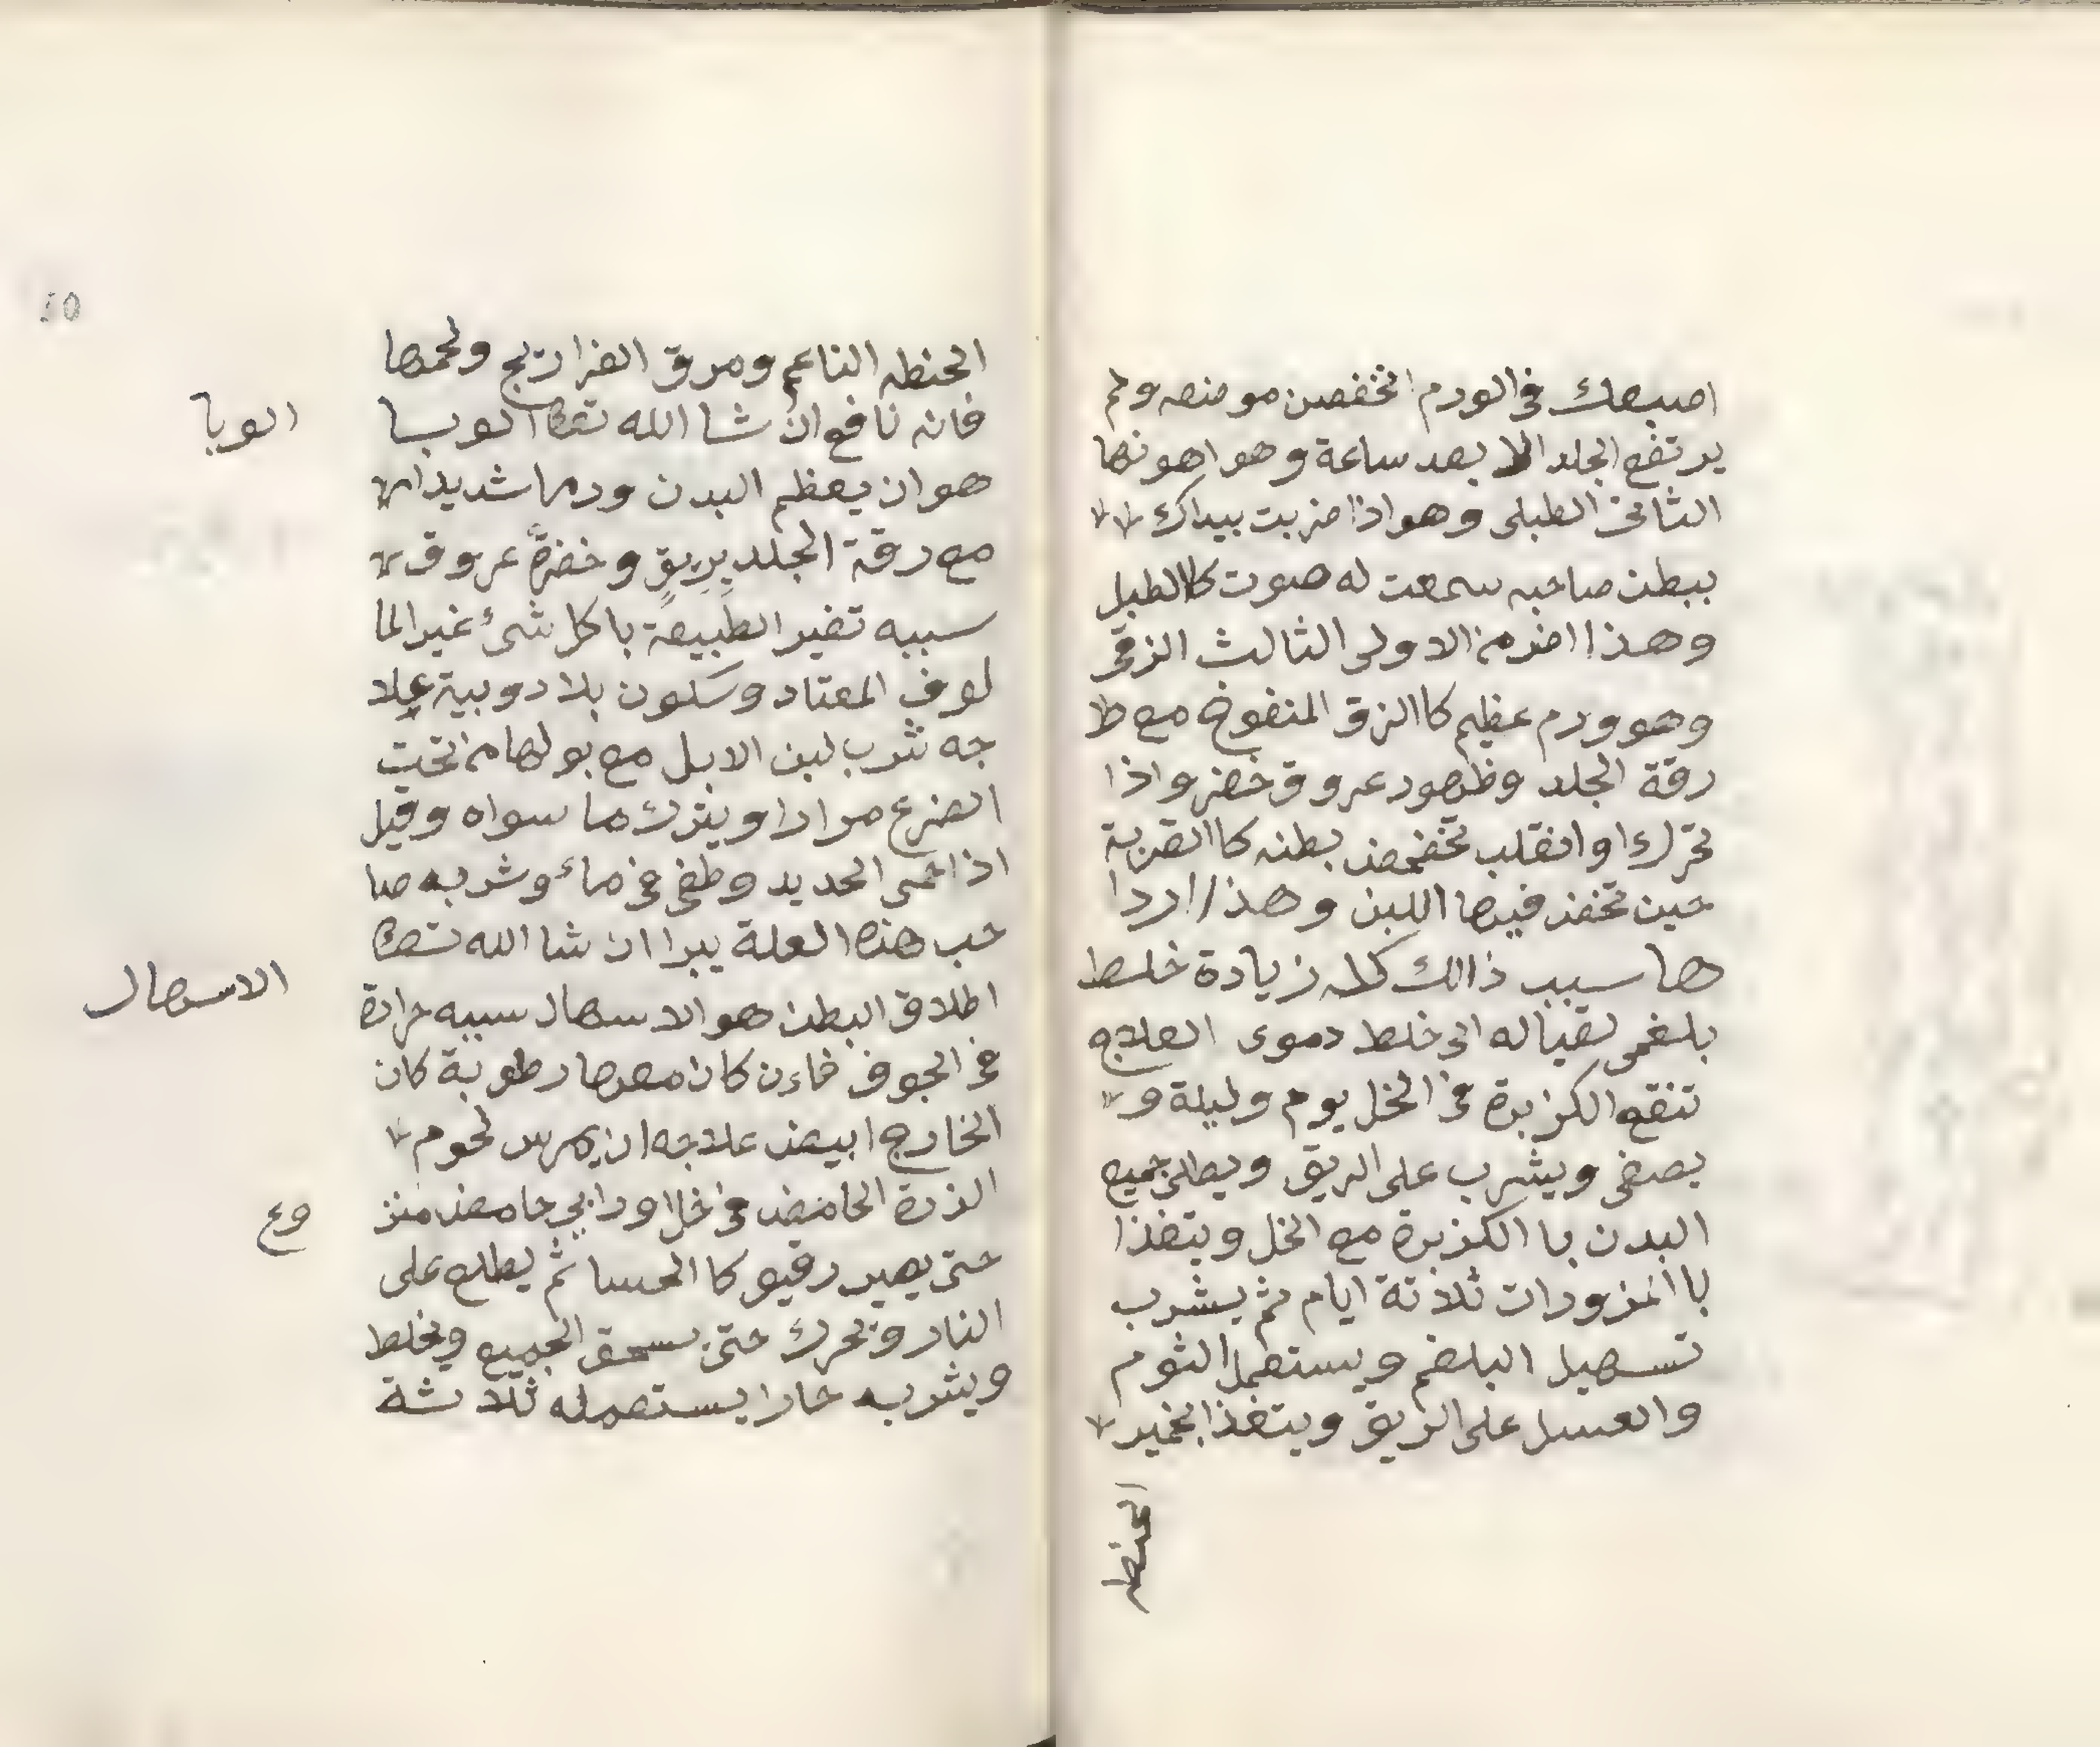 اصبعك في الورم انخفض موضعه ولم
يرتفع الجلد الا بعد ساعة وهو اهونها
الثاني الطبلي وهو اذا ضربت بيداك
ببطن صاحبه سمعت له صوت كالطبل
وهذا اضر من الاولى الثالث الزقي
وهو ورم عظيم كاالزق المنفوخ مع
رقة الجلد وظهور عروق خضر واذا
تحرك او انقلب تخضخض بطنه كاالقربة
حين تخض فيها اللبن وهذا اردا
ها سبب ذالك كله زيادة خلط
بلغمي لقباله الى خلط دموى العلاج
تنقع الكزبرة في الخل يوم وليلة و
يصفى ويشرب على الريق ويطلى جميع
البدن با الكزبرة مع الخل ويتغذا
با المزورات ثلاثة ايام ثم يشرب
تسهيل البلغم ويستعمل الثوم
والعسل على الريق ويتغذا بخمير
الحنطه
الحنطه الناعم ومرق الفراريج ولحمها
فانه نافع ان شا الله تعالى الوبا
هو ان يعظم البدن ورما شديدا
مع رقة الجلد بريق وخضرة عروق
سببه تغير الطبيعة باكل شئ غير الما
لوف المعتاد وسكون بلاد وبية علا
جه شرب لبن الابل مع بولها من تحت
الضرع مرارا ويترك ما سواه وقيل
اذا حمي الحديد وطفي في ماء وشربه صا
حب هذه العلة يبرا ان شا الله تعالى
اطلاق البطن هو الاسهال سببه حرارة
في الجوف فاءن كان معها رطوبة كان
الخارج ابيض علاجه ان يمرس لحوم
الذرة الحامض في خل او رايب حامض
حتى يصير رقيق كا الحسا ثم يطلع على
النار وتحرك حتى يسحق الجميع ويخلط
ويشربه حارا يستعمله ثلاثة
الوبا
الاسهال